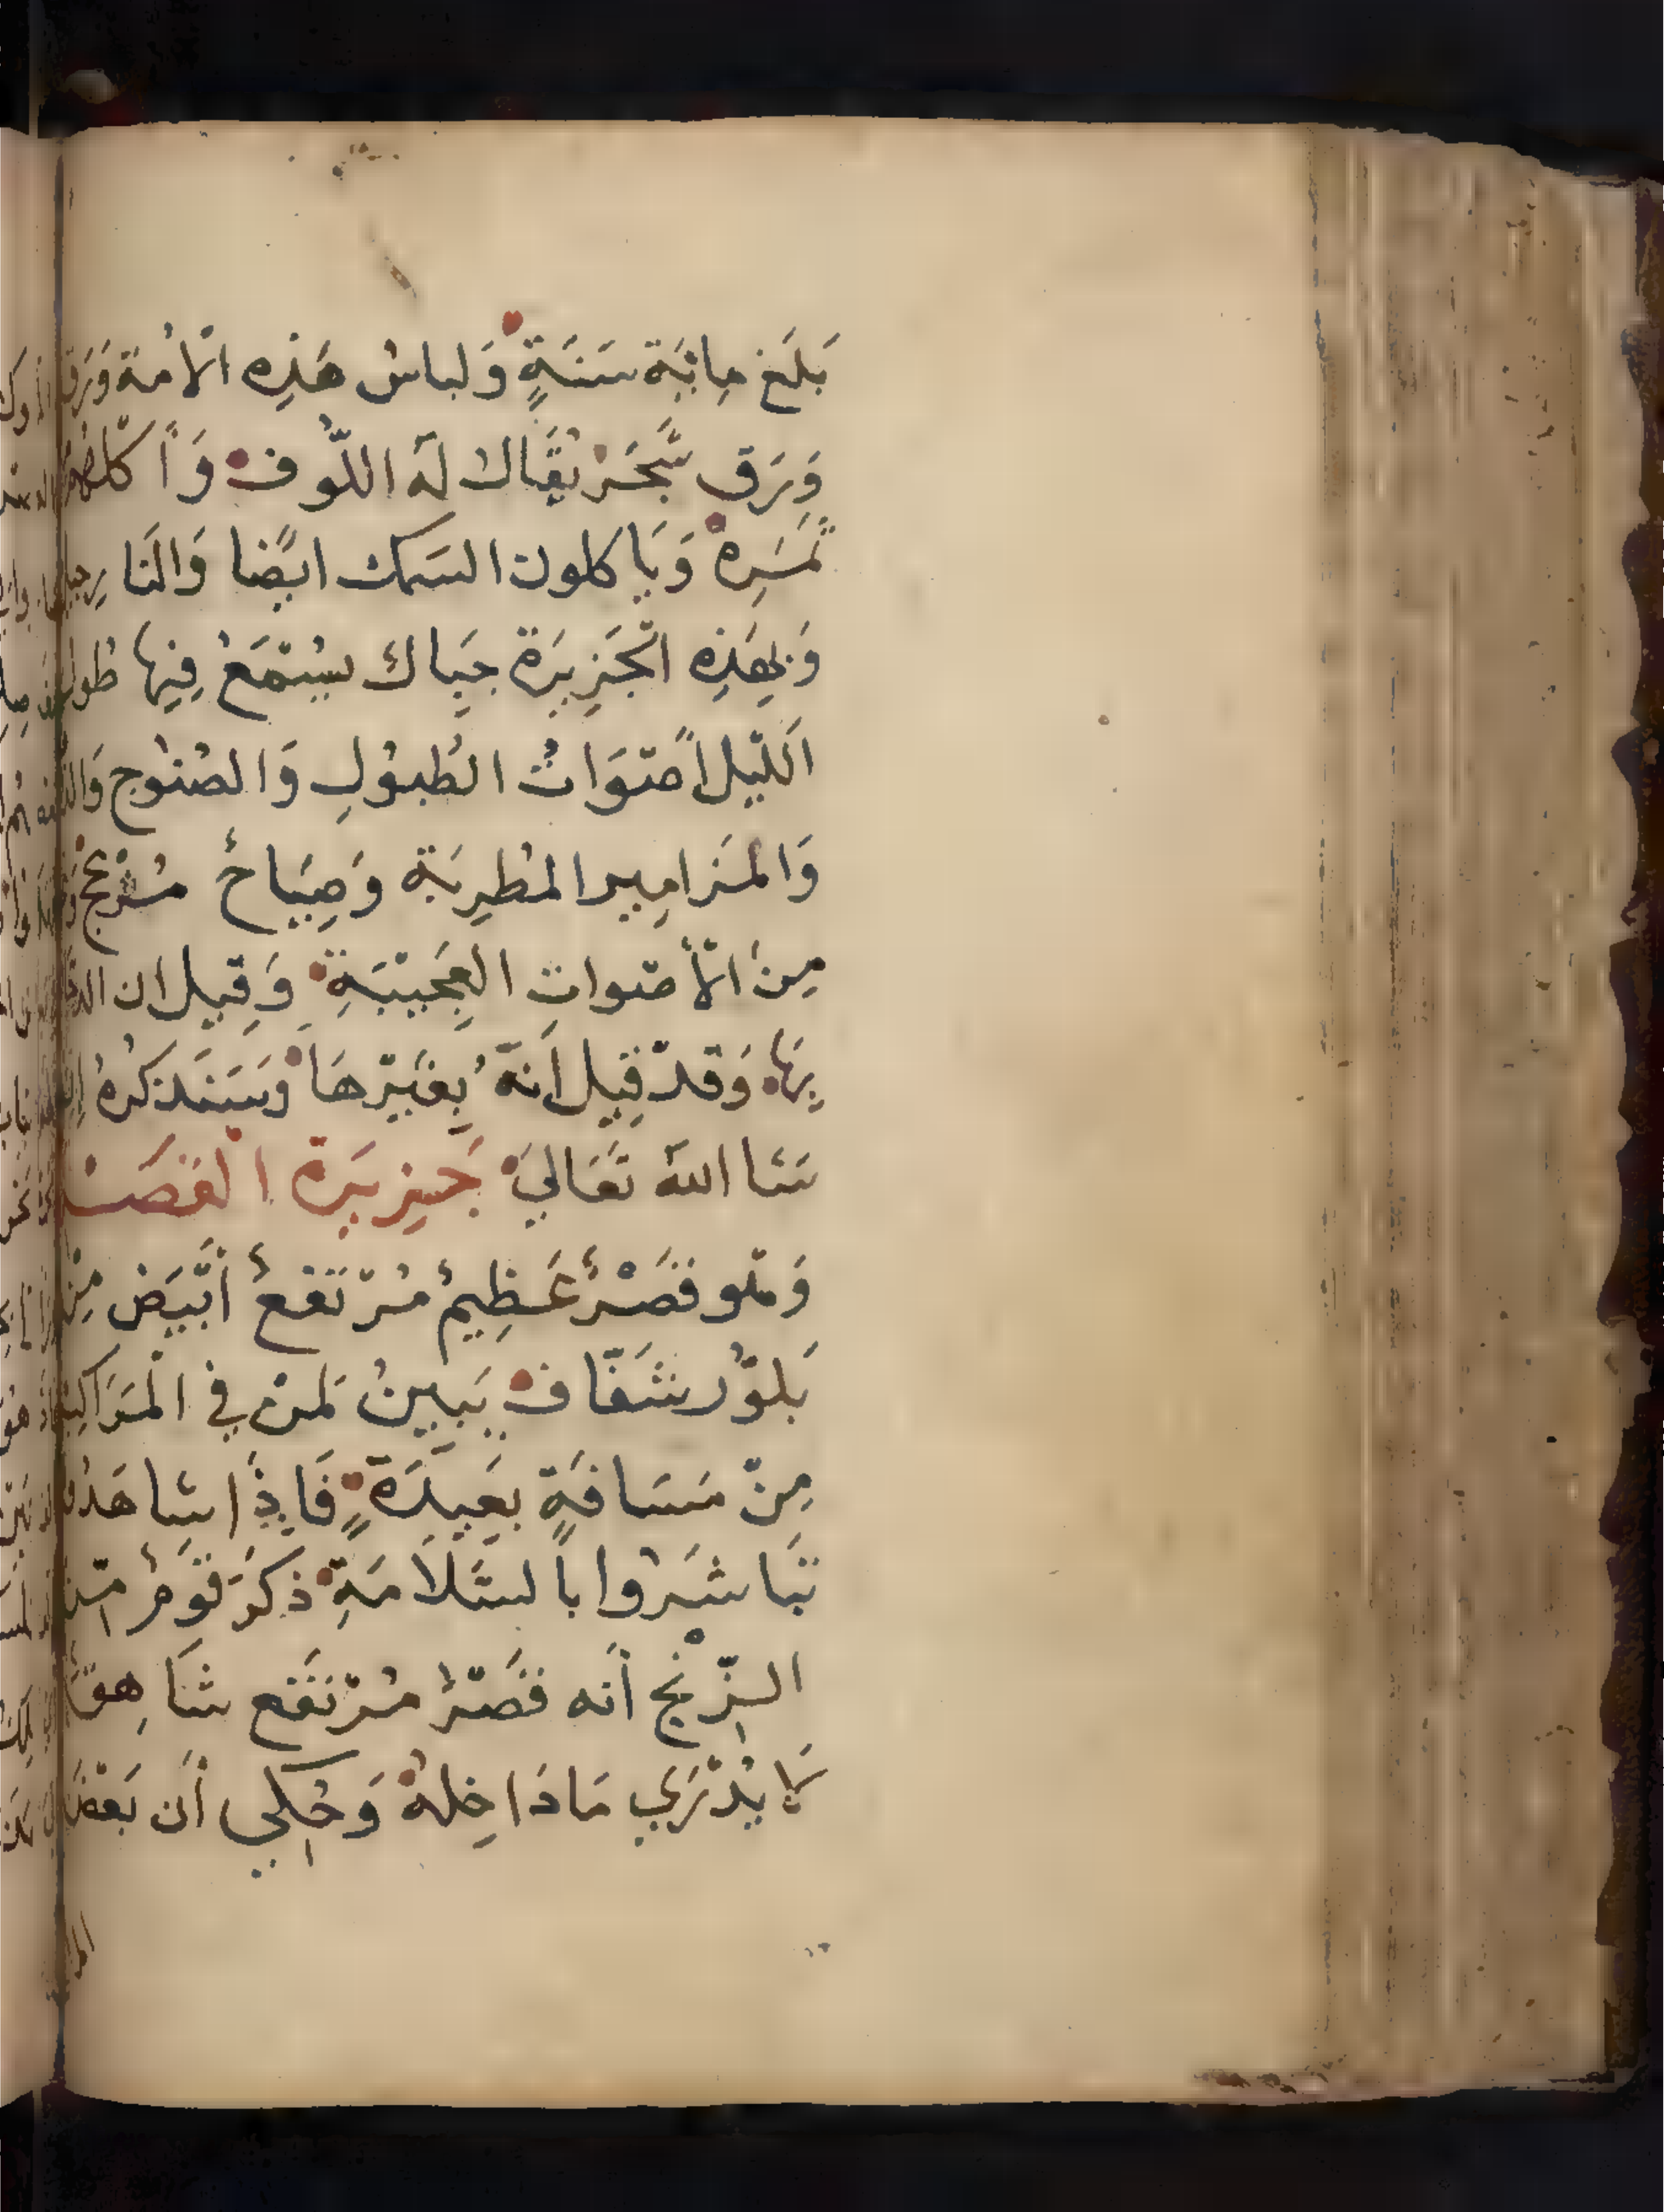 بَلَغَ مِايَة سَنَةٍ وَلباسُ هَذِه الامة وَرَق
وَرَق شَجَر يُقَال لَه اللّوف وَأكلهم
ثمَرِه وَيَا كلون السَمك ايضا وَالنارجيل
وَبِهَذِه الْجَزِيرَة جبَال يسْتمَعُ فِيها طول
اللّيل أصْوَاتُ الطُبُولِ وَالصُنُوج وَالدفوف
وَالمَزامِير المطرِبَة وَصِيَاحٌ مُزْعج
مِنَ الأصْواتِ العَجِيبَةِ وَقِيل ان الدجال
بِهَا وَقدْ قِيل أنَهُ بِغَيْرهَا وَسَنَذكرهُ إن
شا اللهُ تَعَاليَ جَزِيرَة القصْر
وَهْو قَصْرٌ عَظِيمٌ مُرْتَفعٌ أَبْيَض مِنْ
بَلوُّر شَفّاف يَبِينُ لمَنْ في المَرَاكب
مِنْ مَسَافَةٍ بَعِيدَةٍ فَاِذَا شاهَدُوه
تبَاشَرُوا بالسَّلَامَةِ ذكَرَ قَوْمٌ مِن
الزّنج أنه قَصْرٌ مُرْتفَع شَاهِقٌ
لا يُدْرَي مَا دَاخِلهُ وَحُكِي أن بَعْض